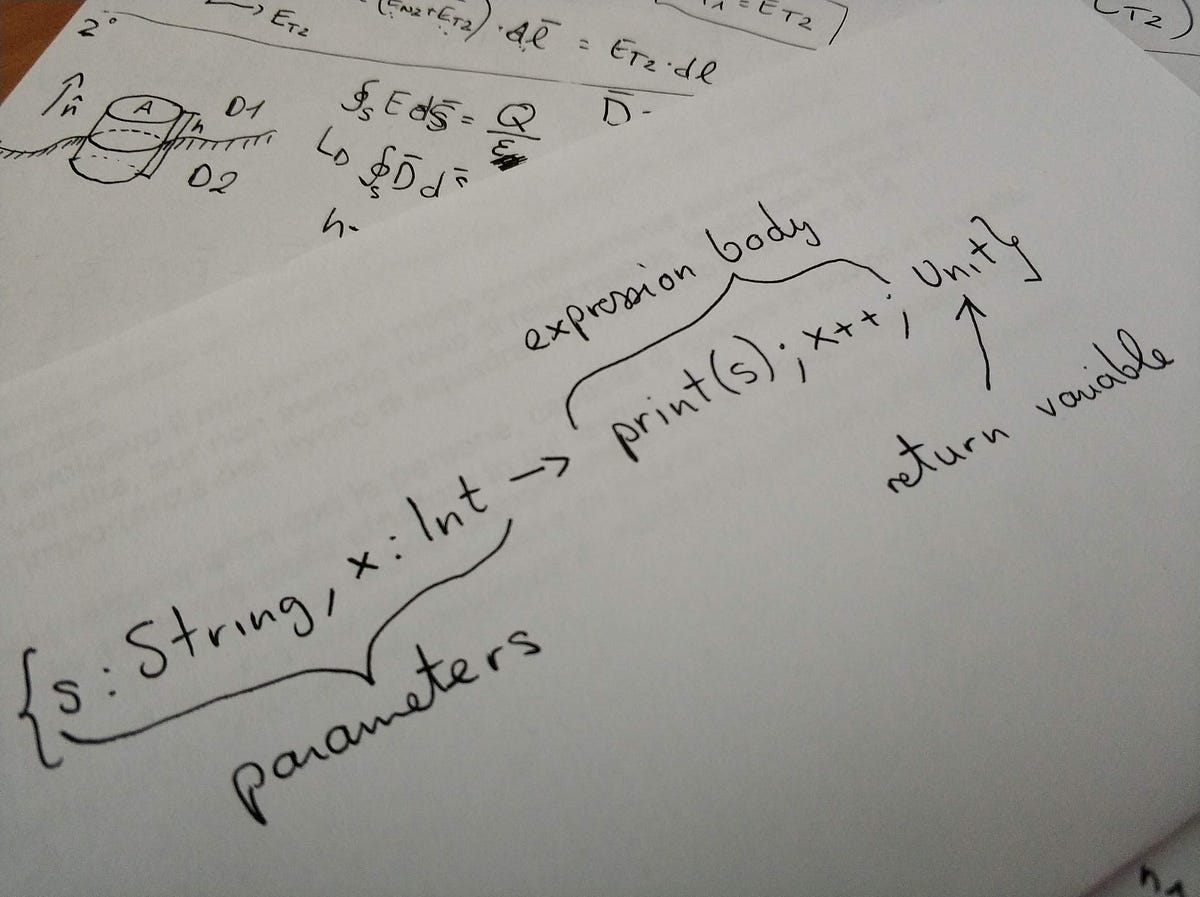 → E_T2
(E_N2+E_T2)·Δl̄ = E_T2·dl
= E_T2
E_T2)
2°
n̂
A
D1
h
D2
∮_S E ds̄ = Q/ε
D̄ -
↳ ∮_S D̄ d
h.
expression body
{s: String, x: Int → print(s); x++; Unit}
parameters
return variable